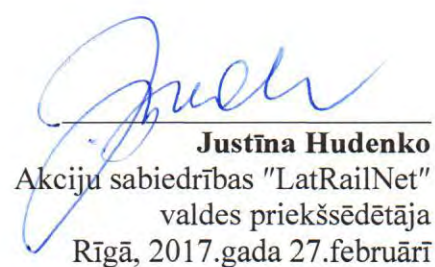 Justīna Hudenko
Akciju sabiedrības "LatRailNet"
valdes priekšsēdētāja
Rīgā, 2017.gada 27.februārī